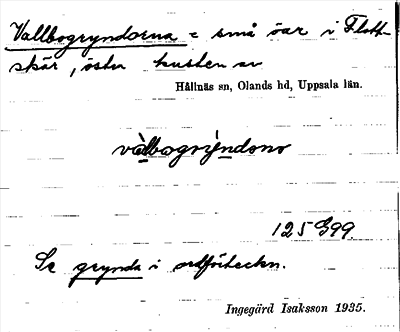 Vallbogryndorna = små öar i Flott-
skär, öster kusten av
Hållnäs sn, Olands hd, Uppsala län.
vàlbogrýndono
125 G99.
Se grynda i ordförteckn.
Ingegärd Isaksson 1935.